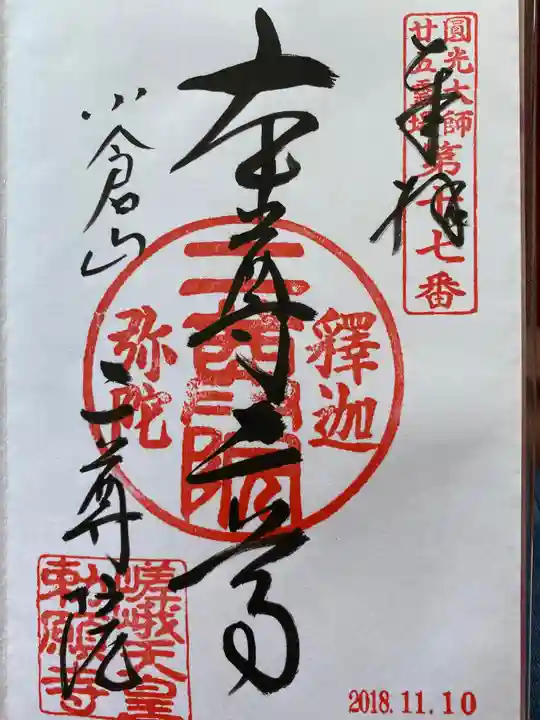 圓光大師
廿五霊場
第十七番
奉拝
本尊二尊
釋迦
二尊院
弥陀
小倉山
二尊院
嵯峨天皇
勅願寺
2018.11.10